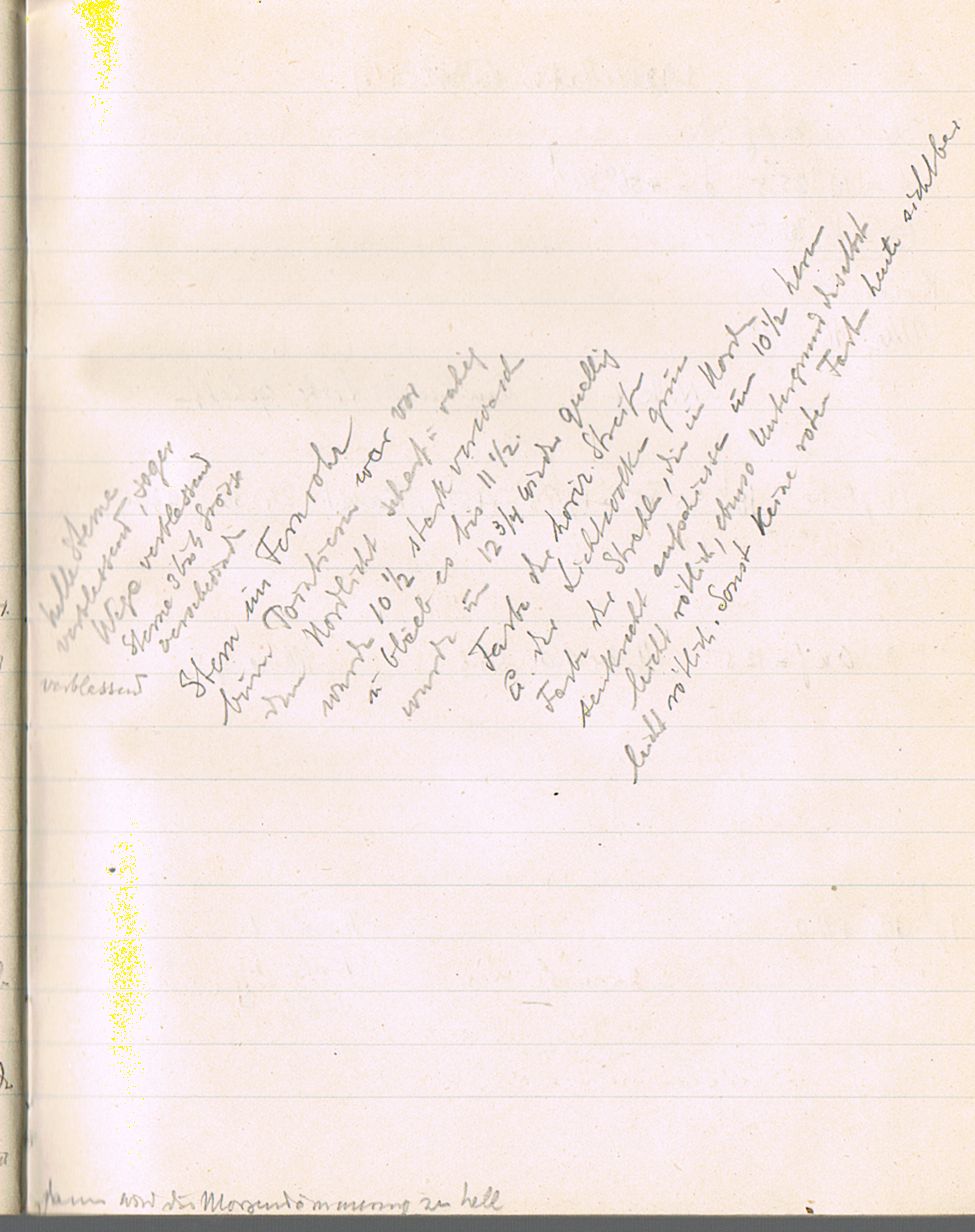 helle Sterne
verblassend, sogar
Wega verblassend
Sterne 3ter Grösse
verschwinden
verblassend
Stern im Fernrohr
beim Pointieren war vor
dem Nordlicht scharf u. ruhig
wurde 10 ½ stark verwasch
u. blieb es bis 11 ½.
wurde um 12 ¾ wieder
Farbe der horiz. Streifen
u. der Lichtwolken grün
Farbe der Strahlen, die im Norden
senkrecht aufschiessen um 10 ½ herum
leicht rötlich, ebenso Untergrund daselbst
leicht rötlich. Sonst keine roten Farben heute sichtbar
dann wird die Morgendämmerung zu hell